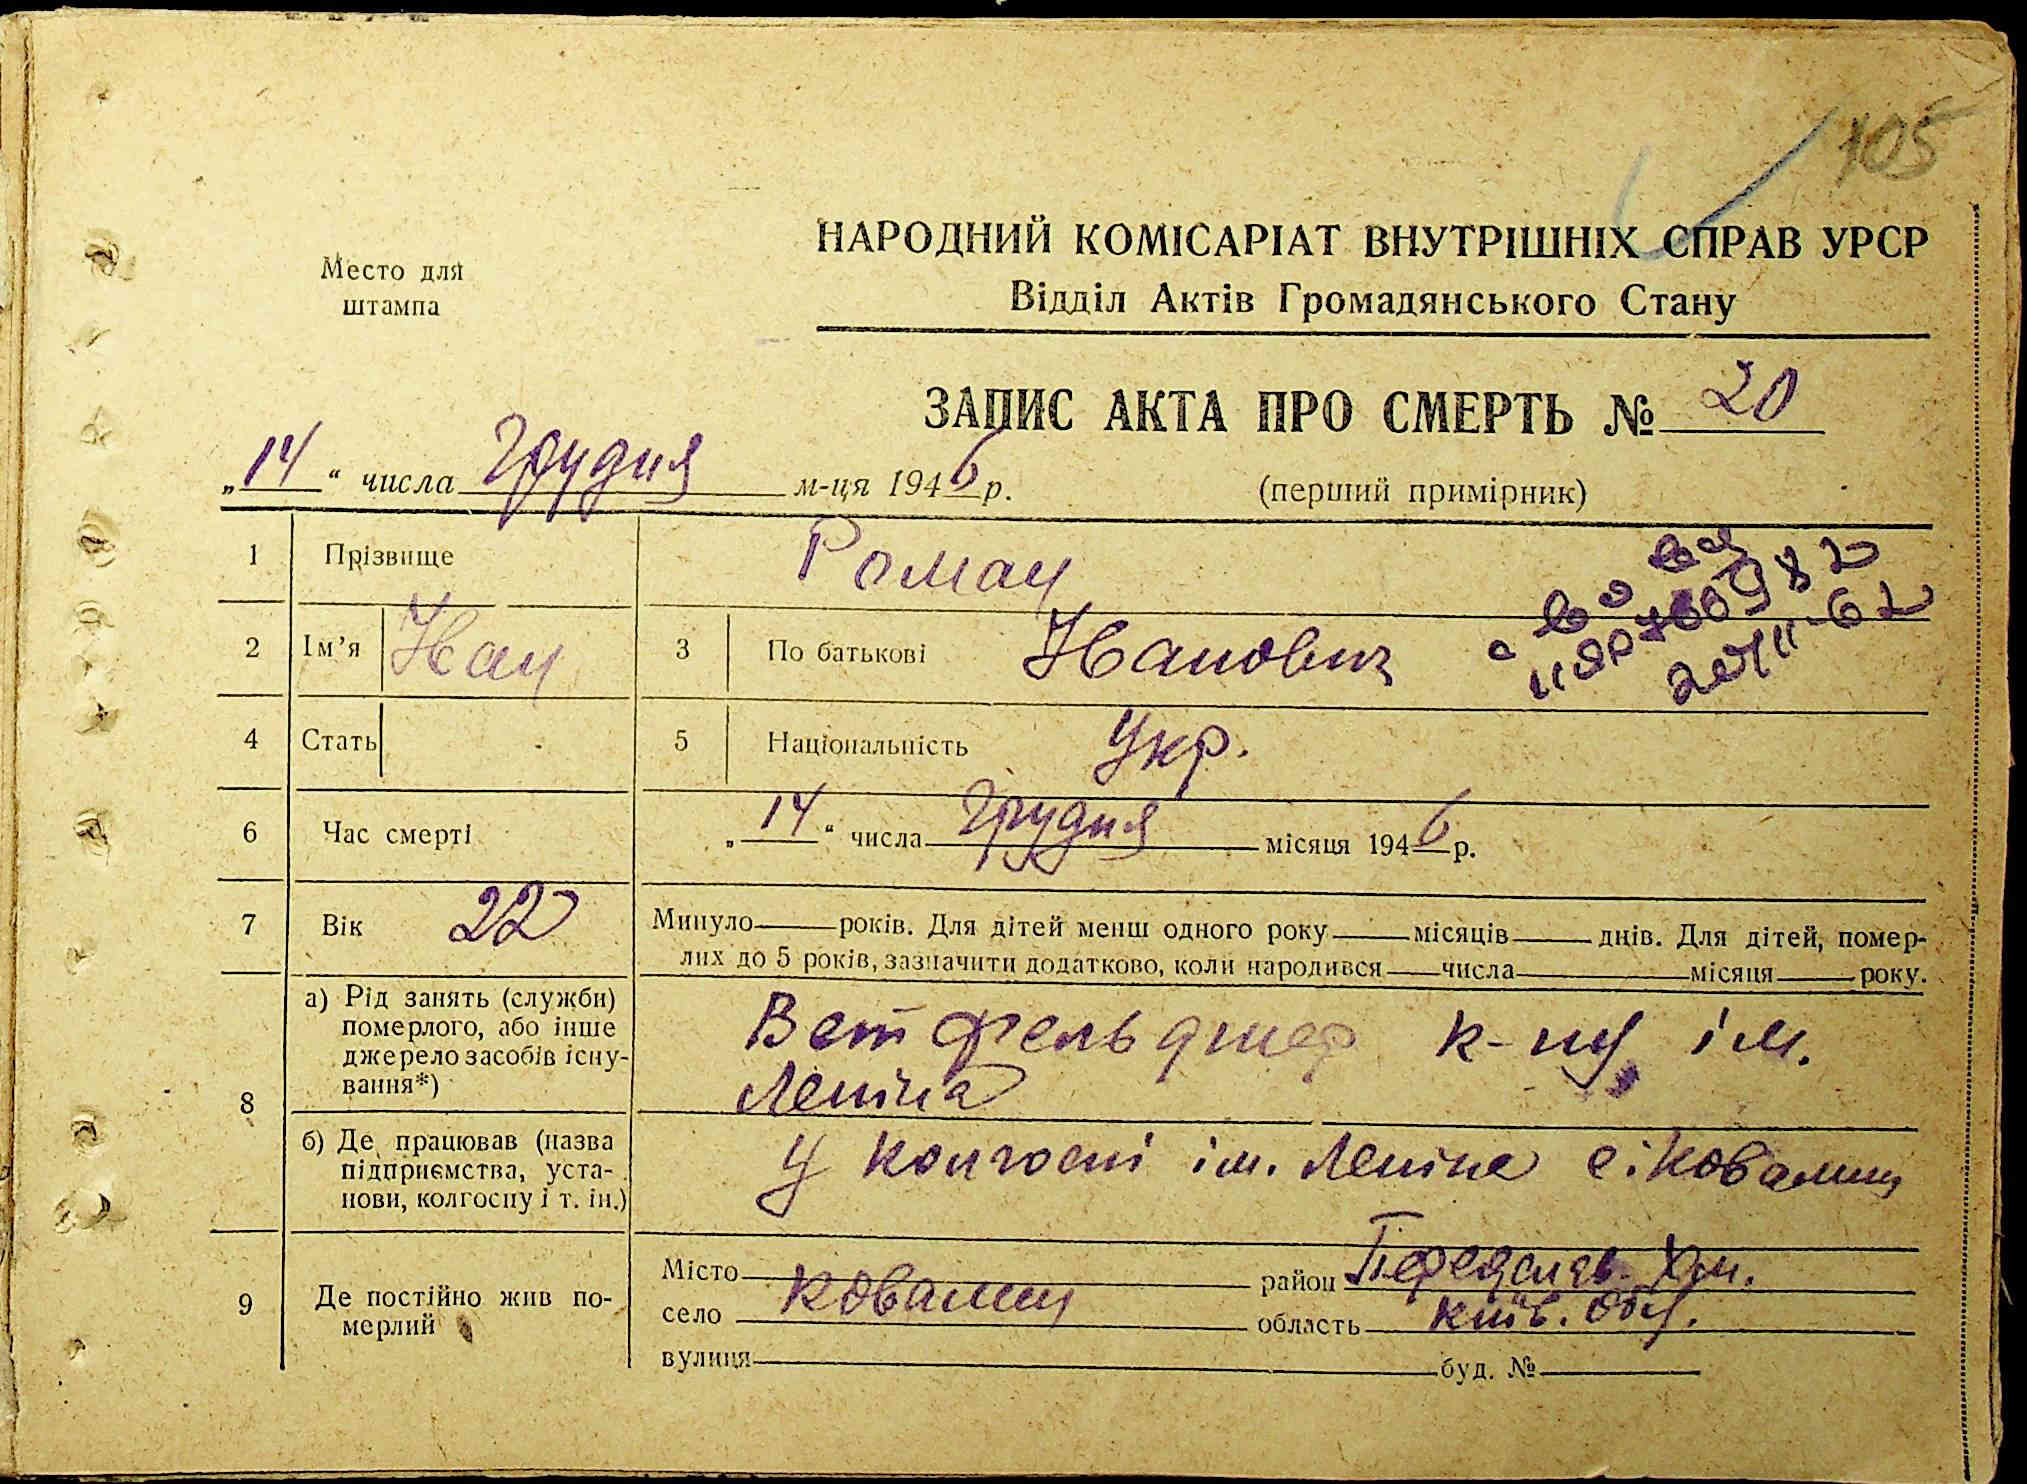 105
Место для
штампа
НАРОДНИЙ КОМІСАРІАТ ВНУТРІШНІХ СПРАВ УРСР
Відділ Актів Громадянського Стану
ЗАПИС АКТА ПРО СМЕРТЬ № 20
„14“ числа Грудня м-ця 1946 р.
(перший примірник)
1 Прізвище Роман
2 Ім’я Иван 3 По батькові Иванович
4 Стать 5 Національність Укр.
6 Час смерті „14“ числа Грудня місяця 1946 р.
7 Вік 22 Минуло років. Для дітей менш одного року місяців днів. Для дітей, помер-
лих до 5 років, зазначити додатково, коли народився числа місяця року.
8 а) Рід занять (служби)
померлого, або інше
джерело засобів існу-
вання*)
Вет фельдшер к-пу ім.
Леніна
б) Де працював (назва
підприємства, уста-
нови, колгоспу і т. ін.)
У колгоспі ім. Леніна с. Ковалин
9 Де постійно жив по-
мерлий
Місто район Переяслав-Хм.
село Ковалин область Київ. обл.
вулиця буд. №